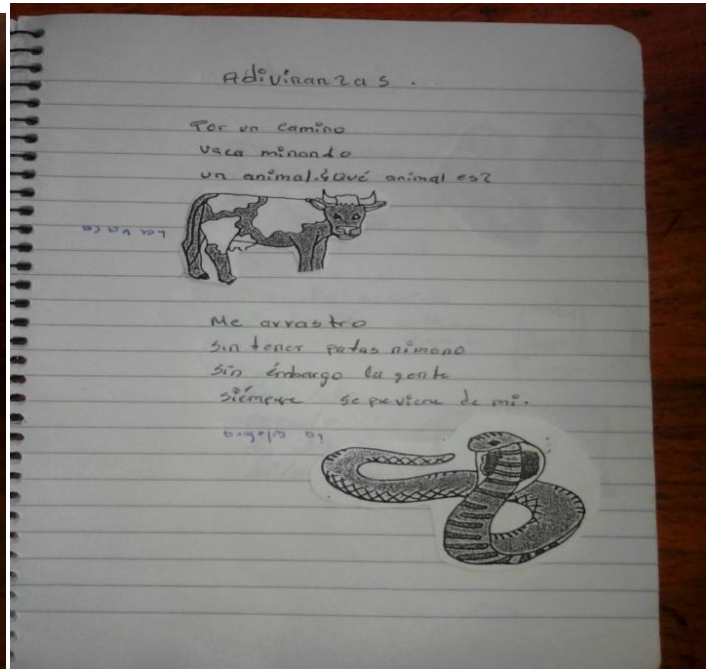 Adivinanzas.
Por un camino
vaca minando
un animal. ¿Qué animal es?
La vaca
Me arrastro
sin tener patas nimano
sin émbargo la gente
siémpre se previene de mi.
la culebra